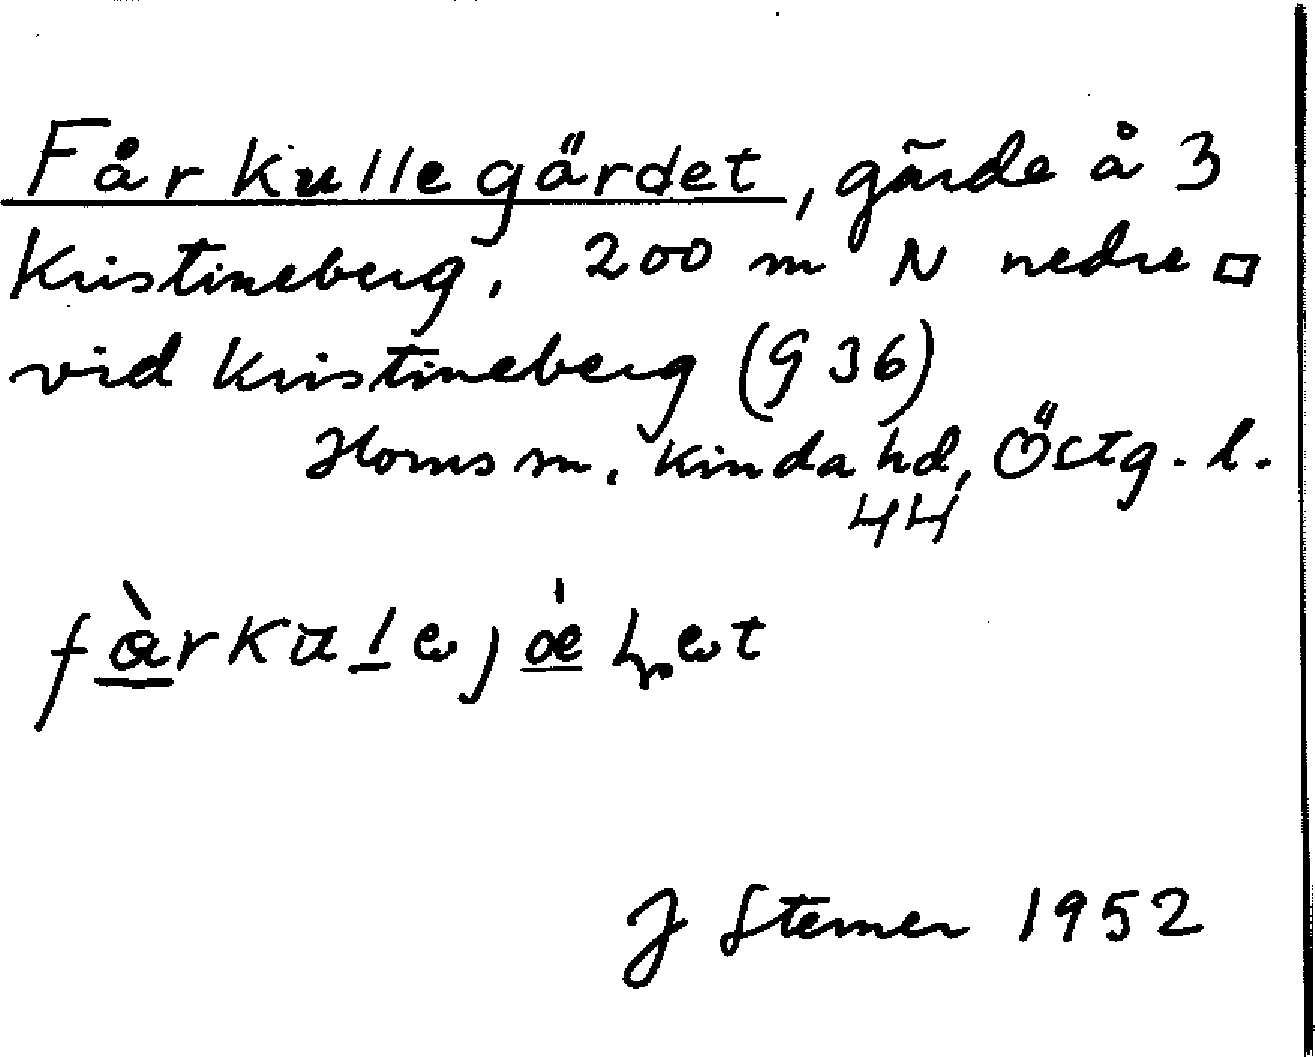 Fårkullegärdet, gärde å 3
Kristineberg, 200 m N nedre □
vid Kristineberg (936)
Horns sn, Kinda hd, Östg. l.
44
J Sterner 1952